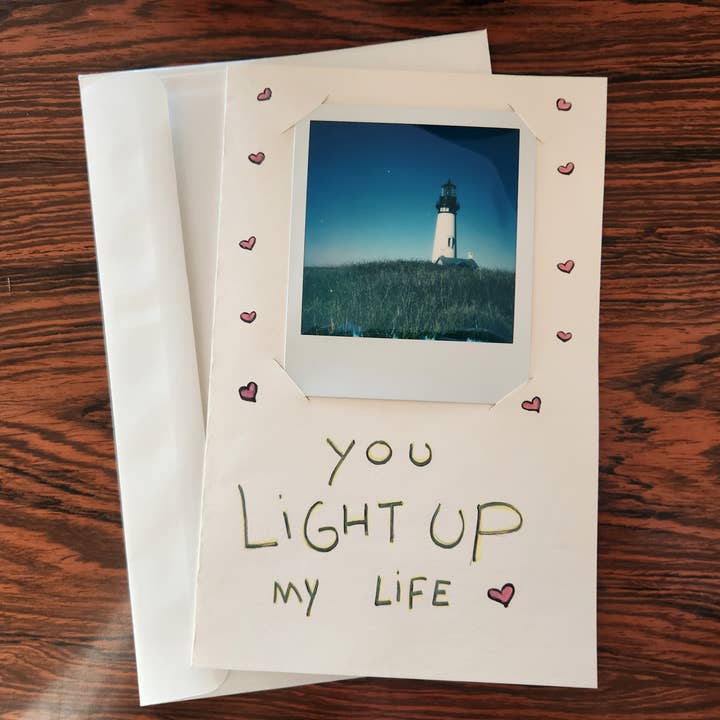 YOU
LiGHT UP
MY LiFE